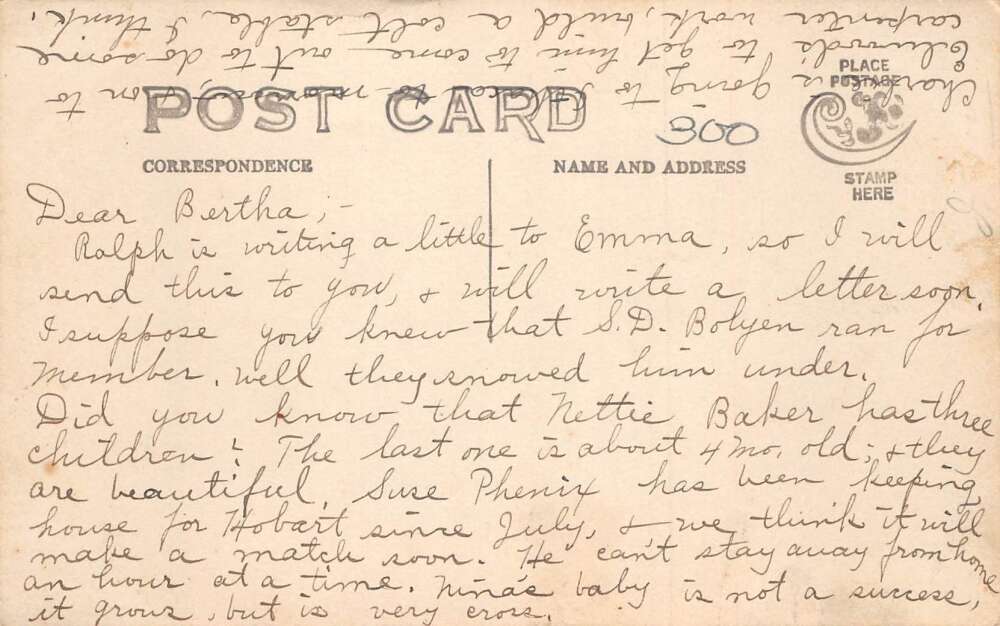 POST CARD
300
PLACE
POSTAGE
STAMP
HERE
CORRESPONDENCE
NAME AND ADDRESS
Dear Bertha;-
Ralph is writing a little to Emma, so I will
send this to you, & will write a letter soon.
I suppose you knew that S.D. Bolyen ran for
Member. well they snowed him under.
Did you know that Nettie Baker has three
children? The last one is about 4 mo. old; & they
are beautiful. Suse Phenix has been keeping
house for Hobart since July, & we think it will
make a match soon. He can't stay away from home
an hour at a time. Nina's baby is not a success,
it grows, but is very cross.
Charlie is going to to-morrow, & on to
Edwards to get him to come out to do some
carpenter work, build a colt stable, I think.